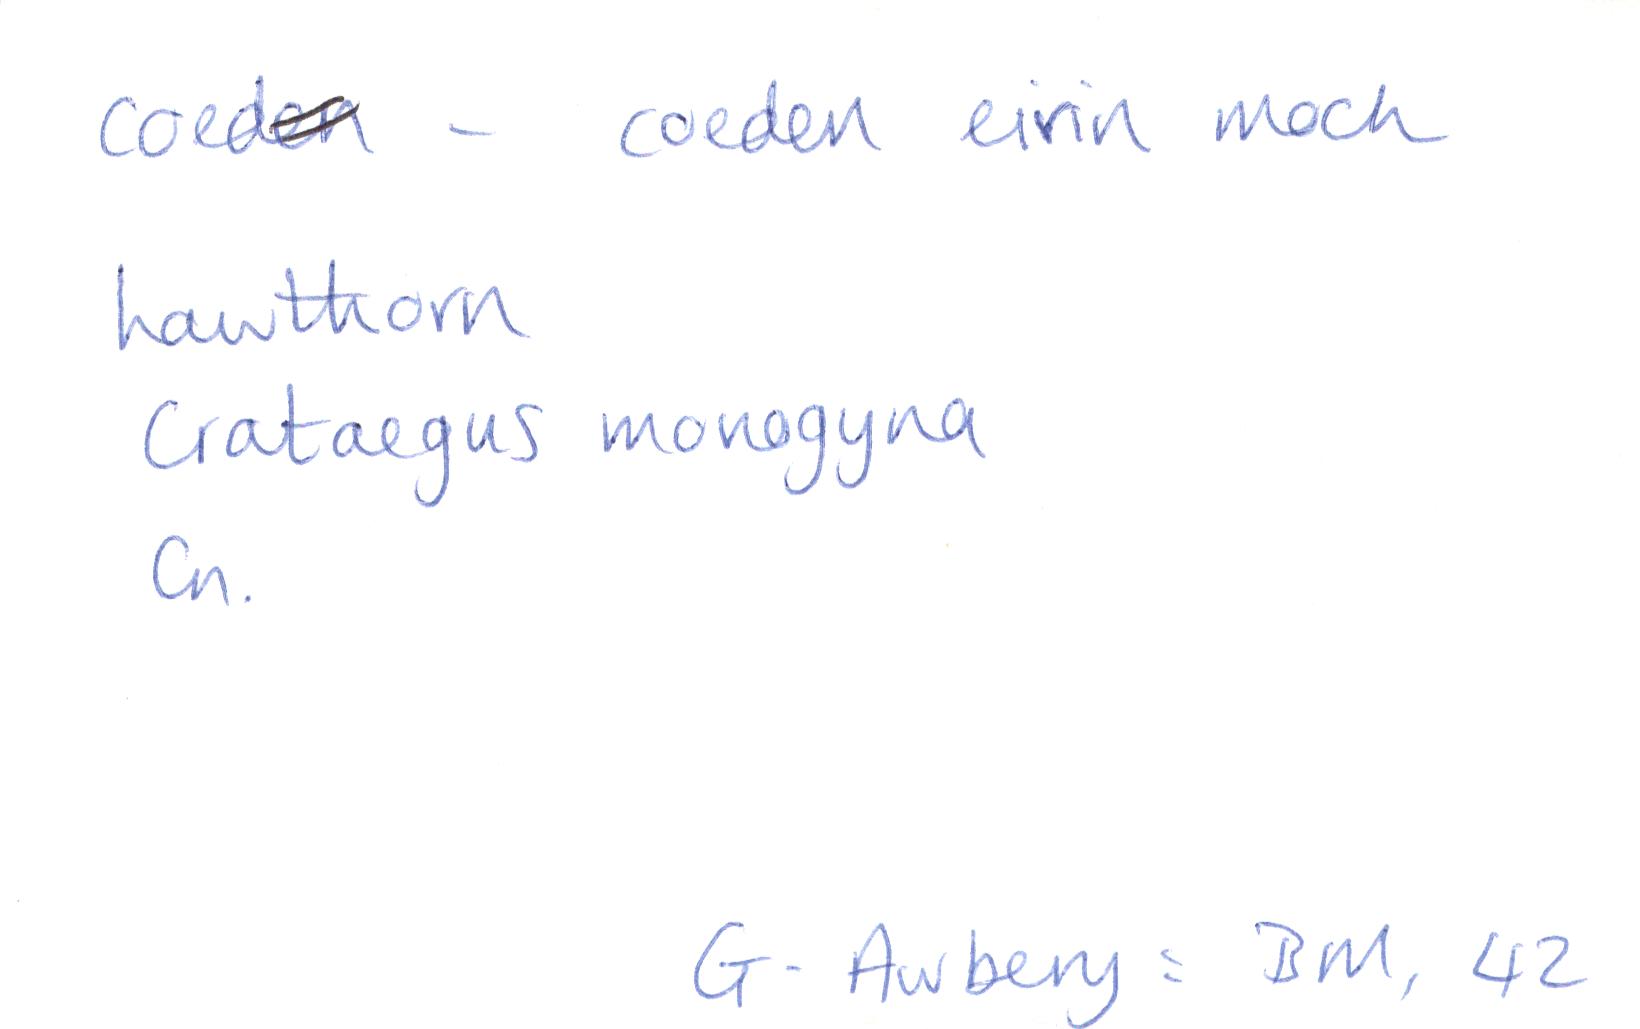 coeden - coeden eirin moch
hawthorn
Crataegus monogyna
Cn.
G. Awbery: BM, 42